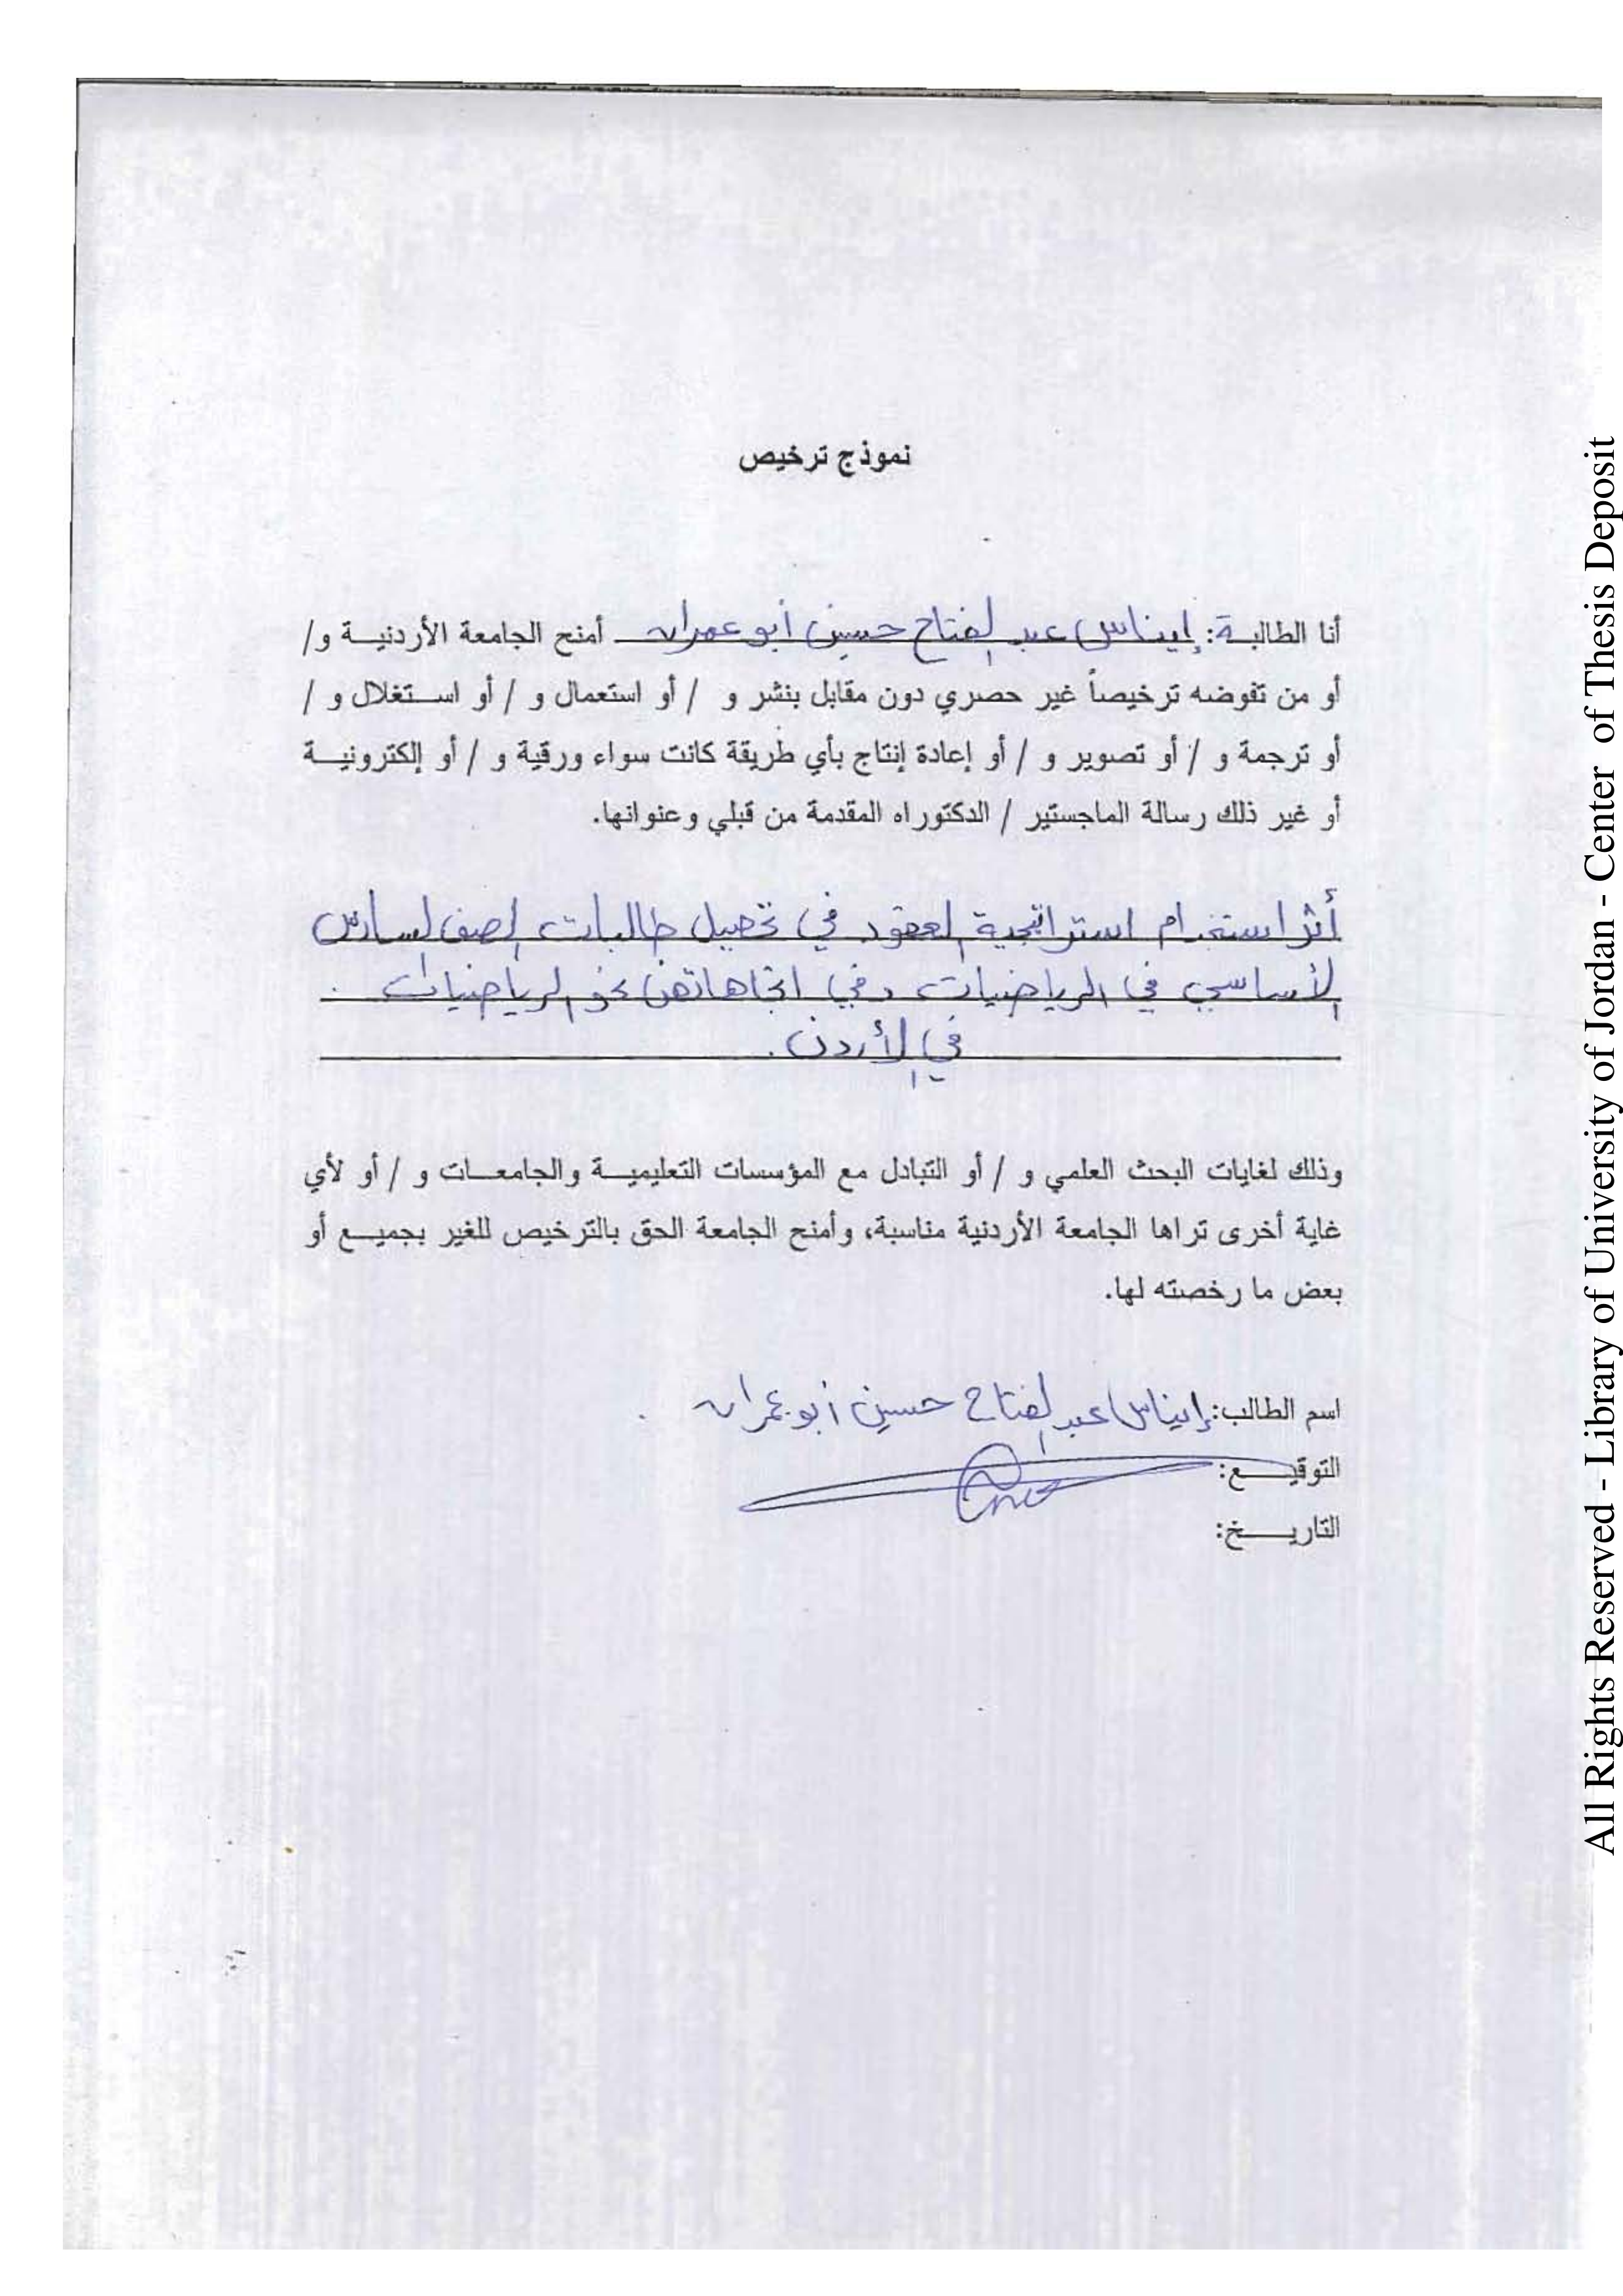 نموذج ترخيص
أنا الطالبة: إيناس عبد الفتاح حسين أبو عمران أمنح الجامعة الأردنية و/
أو من تفوضه ترخيصاً غير حصري دون مقابل بنشر و / أو استعمال و / أو استغلال و /
أو ترجمة و / أو تصوير و / أو إعادة إنتاج بأي طريقة كانت سواء ورقية و / أو إلكترونية
أو غير ذلك رسالة الماجستير / الدكتوراه المقدمة من قبلي وعنوانها.
أثر استخدام استراتيجية العقود في تحصيل طالبات الصف السادس
الأساسي في الرياضيات وفي اتجاهاتهن نحو الرياضيات .
في الأردن.
وذلك لغايات البحث العلمي و / أو التبادل مع المؤسسات التعليمية والجامعات و / أو لأي
غاية أخرى تراها الجامعة الأردنية مناسبة، وأمنح الجامعة الحق بالترخيص للغير بجميع أو
بعض ما رخصته لها.
اسم الطالب: إيناس عبد الفتاح حسين أبو عمران .
التوقيع:
التاريخ:
All Rights Reserved - Library of University of Jordan - Center of Thesis Deposit